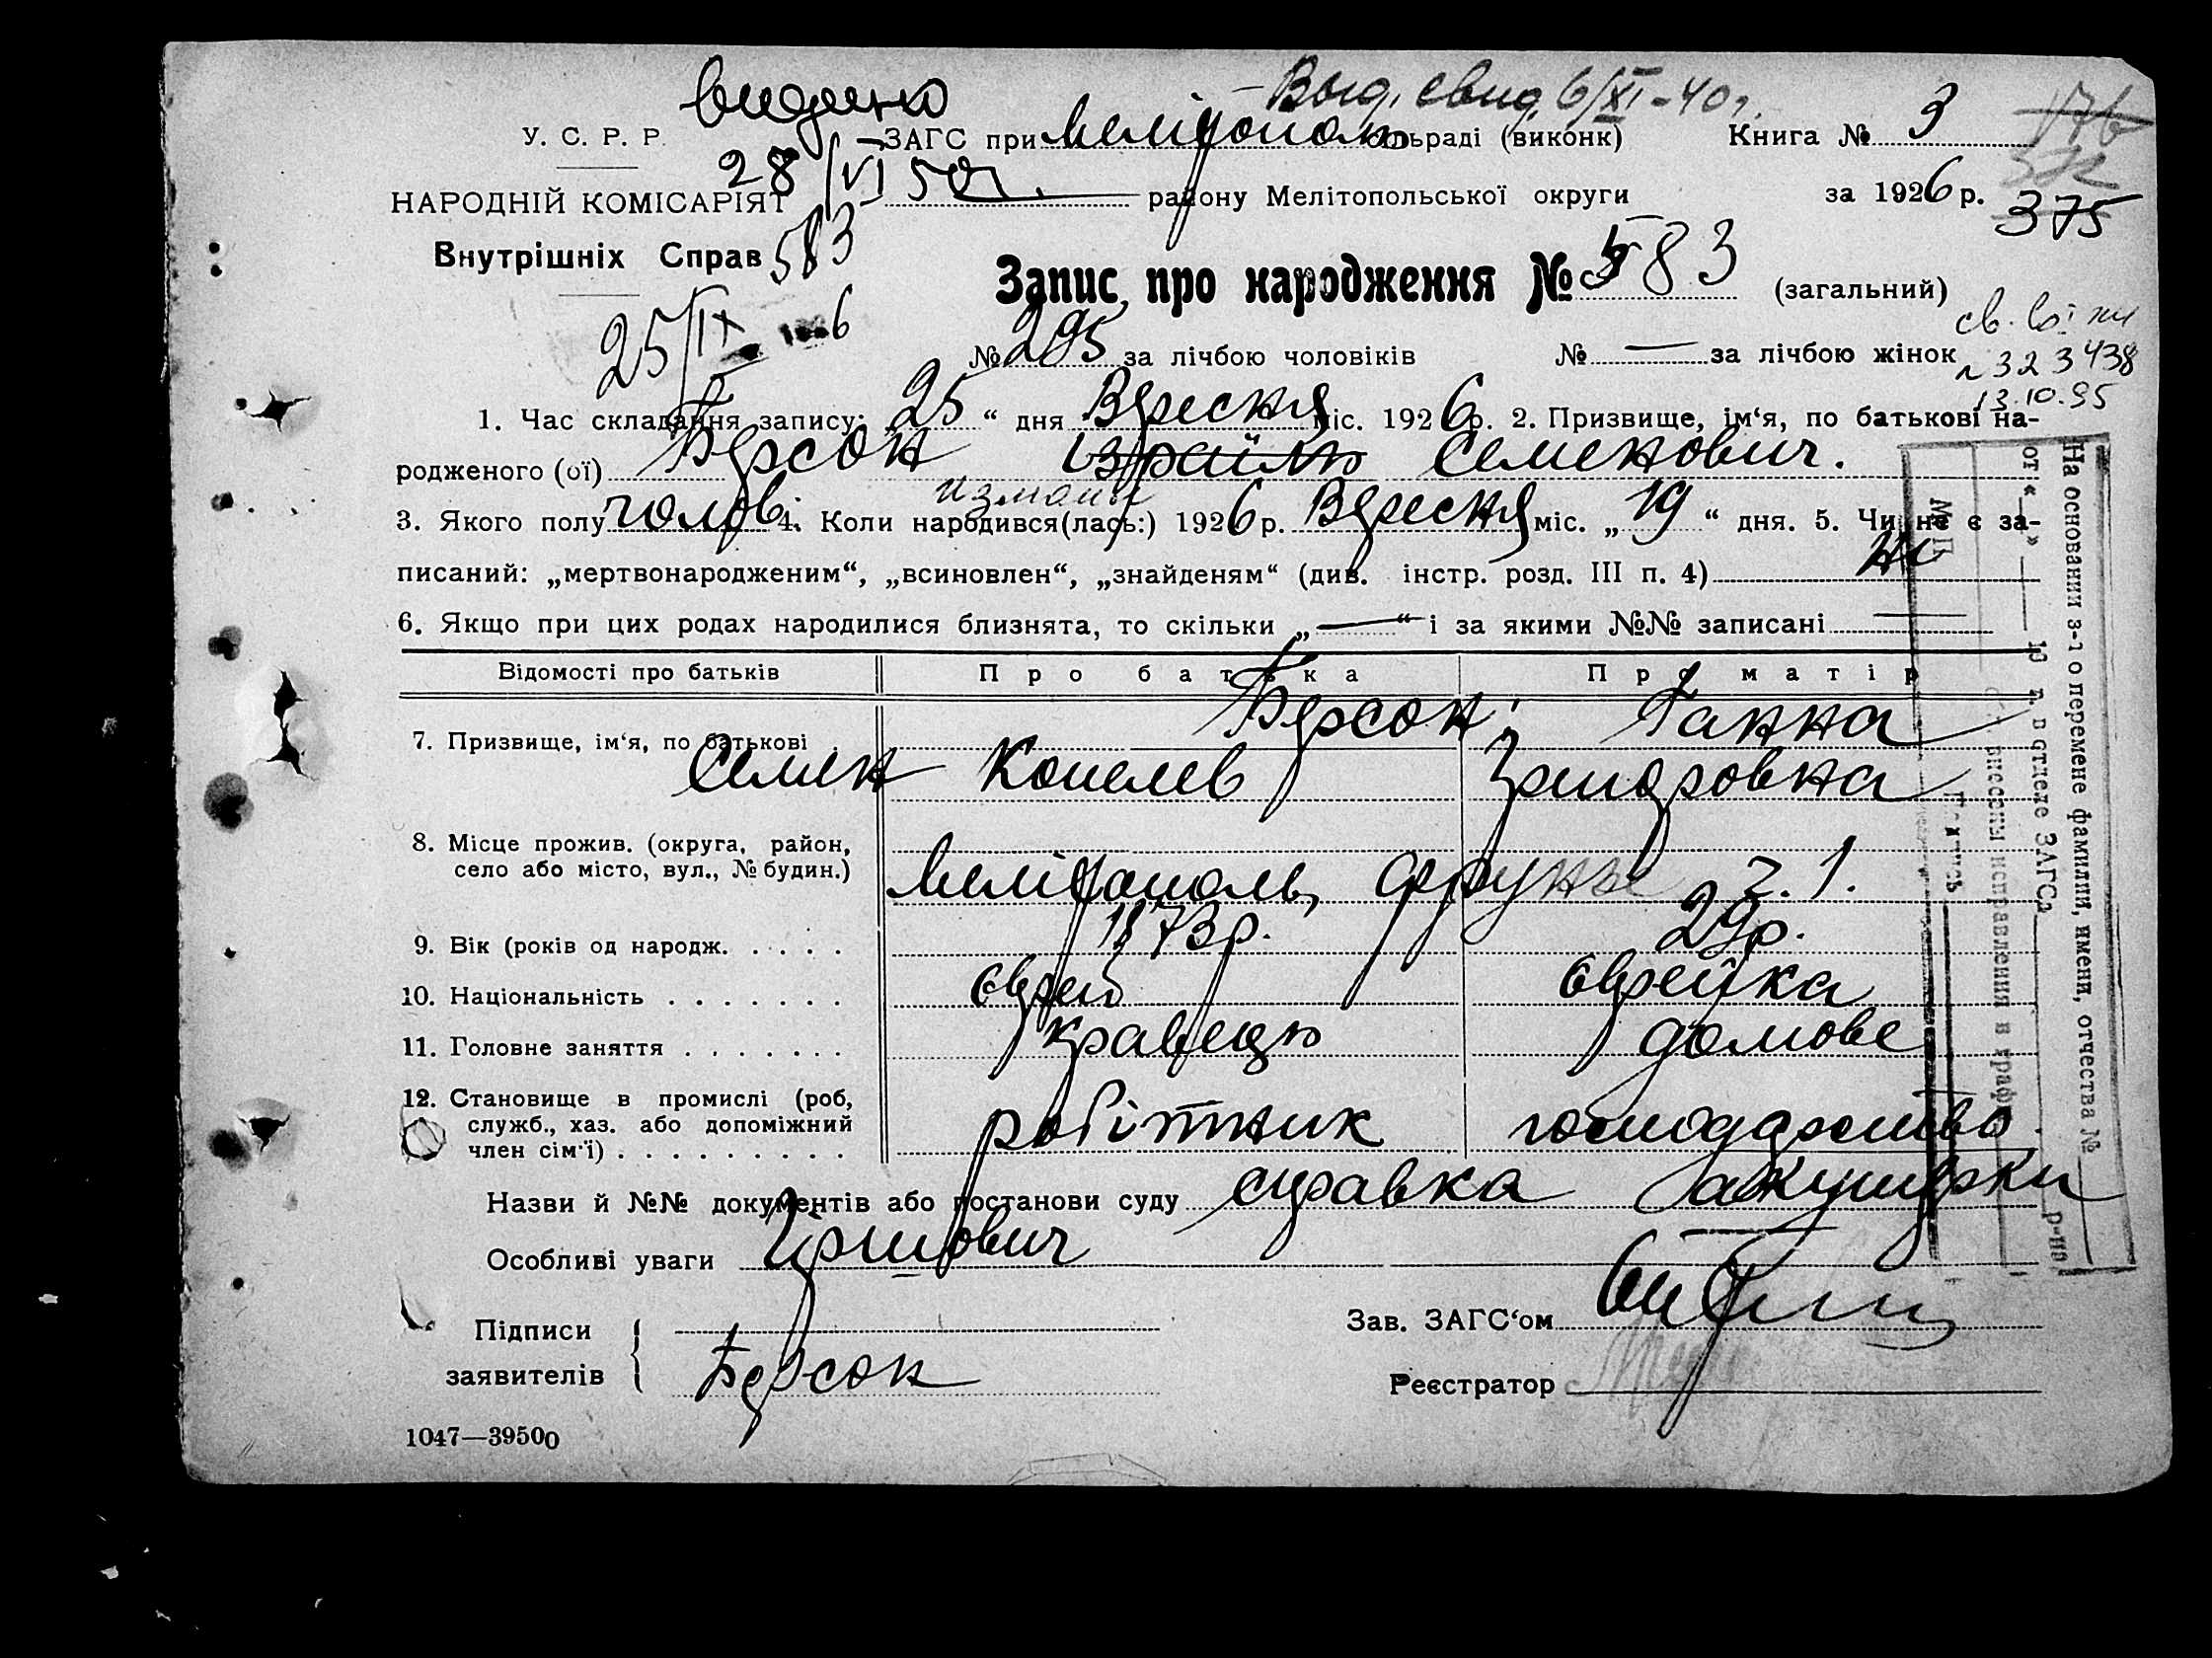 видано
Выд. свид. 6/XI-40г.
У. С. Р. Р. ЗАГС при Мелітополь сільраді (виконк) Книга № 3
176
572
28/VI 50г. району Мелітопольської округи за 1926 р.
375
НАРОДНІЙ КОМІСАРІЯТ
Внутрішніх Справ
583
Запис про народження № 583 (загальний)
25/IX 1926
№ 295 за лічбою чоловіків № — за лічбою жінок
№ 323438
13.10.95
1. Час складання запису: 25 “ дня Вересня міс. 1926 р. 2. Призвище, ім‘я, по батькові на-
родженого (ої) Берсон Ізраїль Семенович.
3. Якого полу чолов 4. Коли народився(лась:) 1926 р. Вересня міс. „ 19 “ дня. 5. Чи не є за-
писаний: „мертвонародженим“, „всиновлен“, „знайденям“ (див. інстр. розд. III п. 4) ні
6. Якщо при цих родах народилися близнята, то скільки „ — “ і за якими №№ записані —
Відомості про батьків Про батька Про матір
7. Призвище, ім‘я, по батькові Берсон: Ганна
Семен Копелев
8. Місце прожив. (округа, район,
село або місто, вул., № будин.) Мелітополь, Фрунзе ч. 1.
9. Вік (років од народж. . . . . 1873р. 29р.
10. Національність . . . . . . . Єврей Єврейка
11. Головне заняття . . . . . . . кравець домове
12. Становище в промислі (роб,
служб., хаз. або допоміжний
член сім'ї) . . . . . . . . . робітник господарство.
Назви й №№ документів або постанови суду справка Акушерки
Особливі уваги
Підписи
заявителів Берсон
Зав. ЗАГС‘ом
Реєстратор
1047—39500
На основании з-я о перемене фамилии, имени, отчества №
от « » 19 г. в отделе ЗАГСа р-на
внесены исправления в граф
Подпись
М П